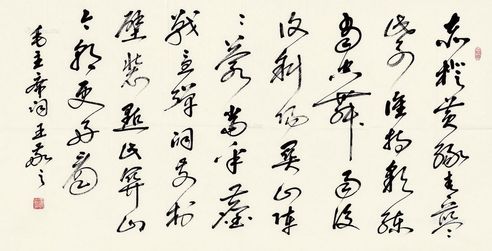 赤橙黄绿青蓝
紫谁持彩练
当空舞雨后
复斜阳关山阵
々苍当年鏖
战急弹洞前村
壁装点此关山
今朝更好看
毛主席词王